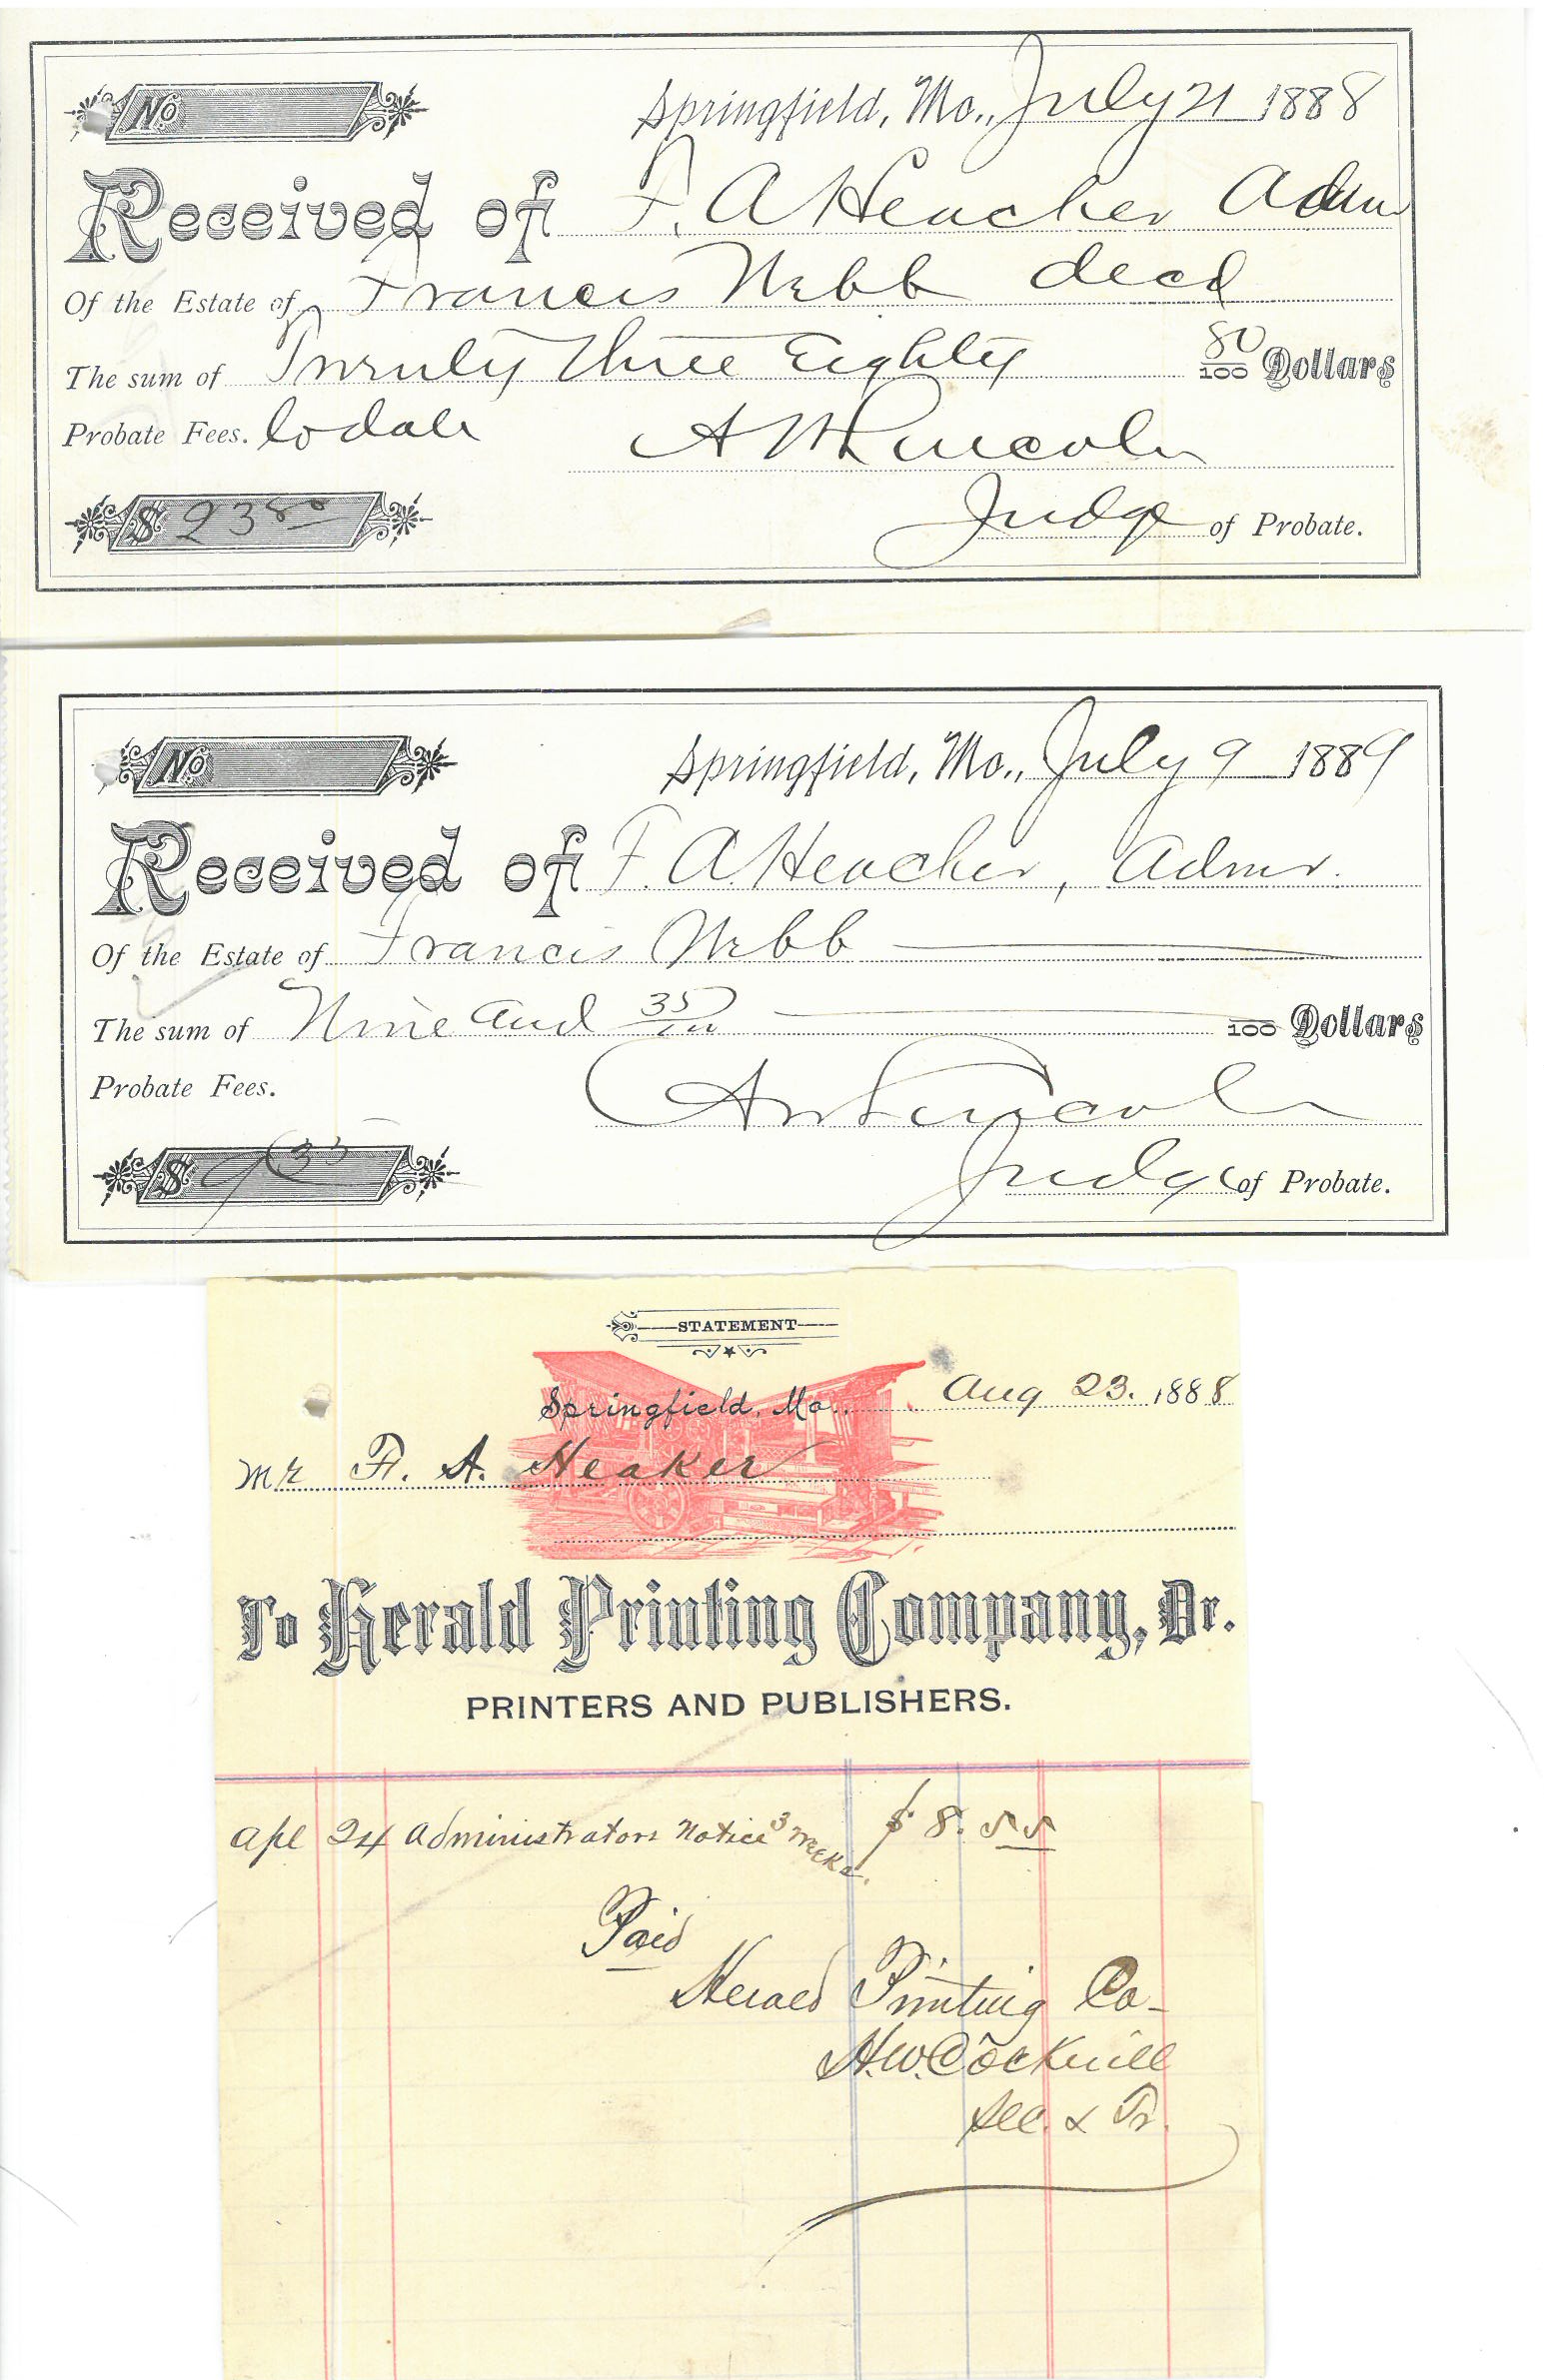 No
Springfield, Mo., July 21 1888
Received of F. A Heacker Adm
Of the Estate of Francis Webb decd
The sum of Twenty three Eighty 80/100 Dollars
Probate Fees. to date
A W Lincoln
$ 23 80
Judge of Probate.
No
Springfield, Mo., July 9 1889
Received of F. A. Heacker, Admr.
Of the Estate of Francis Webb
The sum of Nine and 35/100 /100 Dollars
Probate Fees.
A W Lincoln
$ 9 35
Judge of Probate.
STATEMENT
Springfield, Mo., Aug 23. 1888
Mr F. A. Heaker
To Herald Printing Company, Dr.
PRINTERS AND PUBLISHERS.
Apl 24 Administrators Notice 3 weeks. $ 8.55
Paid
Herald Printing Co
H.W. Cockrill
Sec. & Tr.